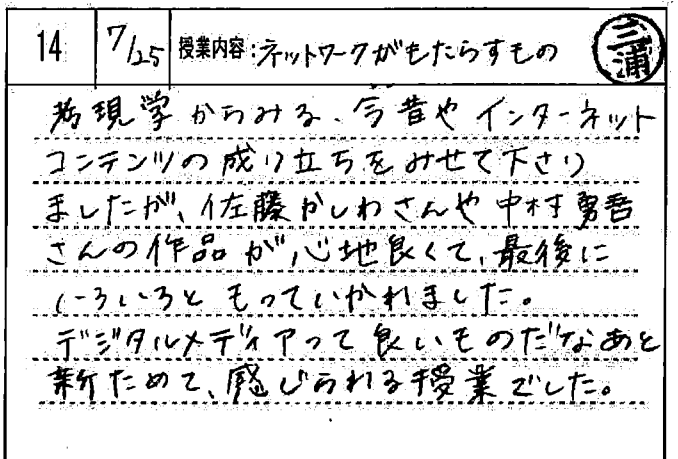 14 7/25 授業内容:ネットワークがもたらすもの 三浦
考現学からみる、今昔やインターネット
コンテンツの成り立ちをみせて下さり
ましたが、佐藤かしわさんや中村勇吾
さんの作品が心地良くて、最後に
いろいろともっていかれました。
デジタルメディアって良いものだなあと
新ためて、感じられる授業でした。